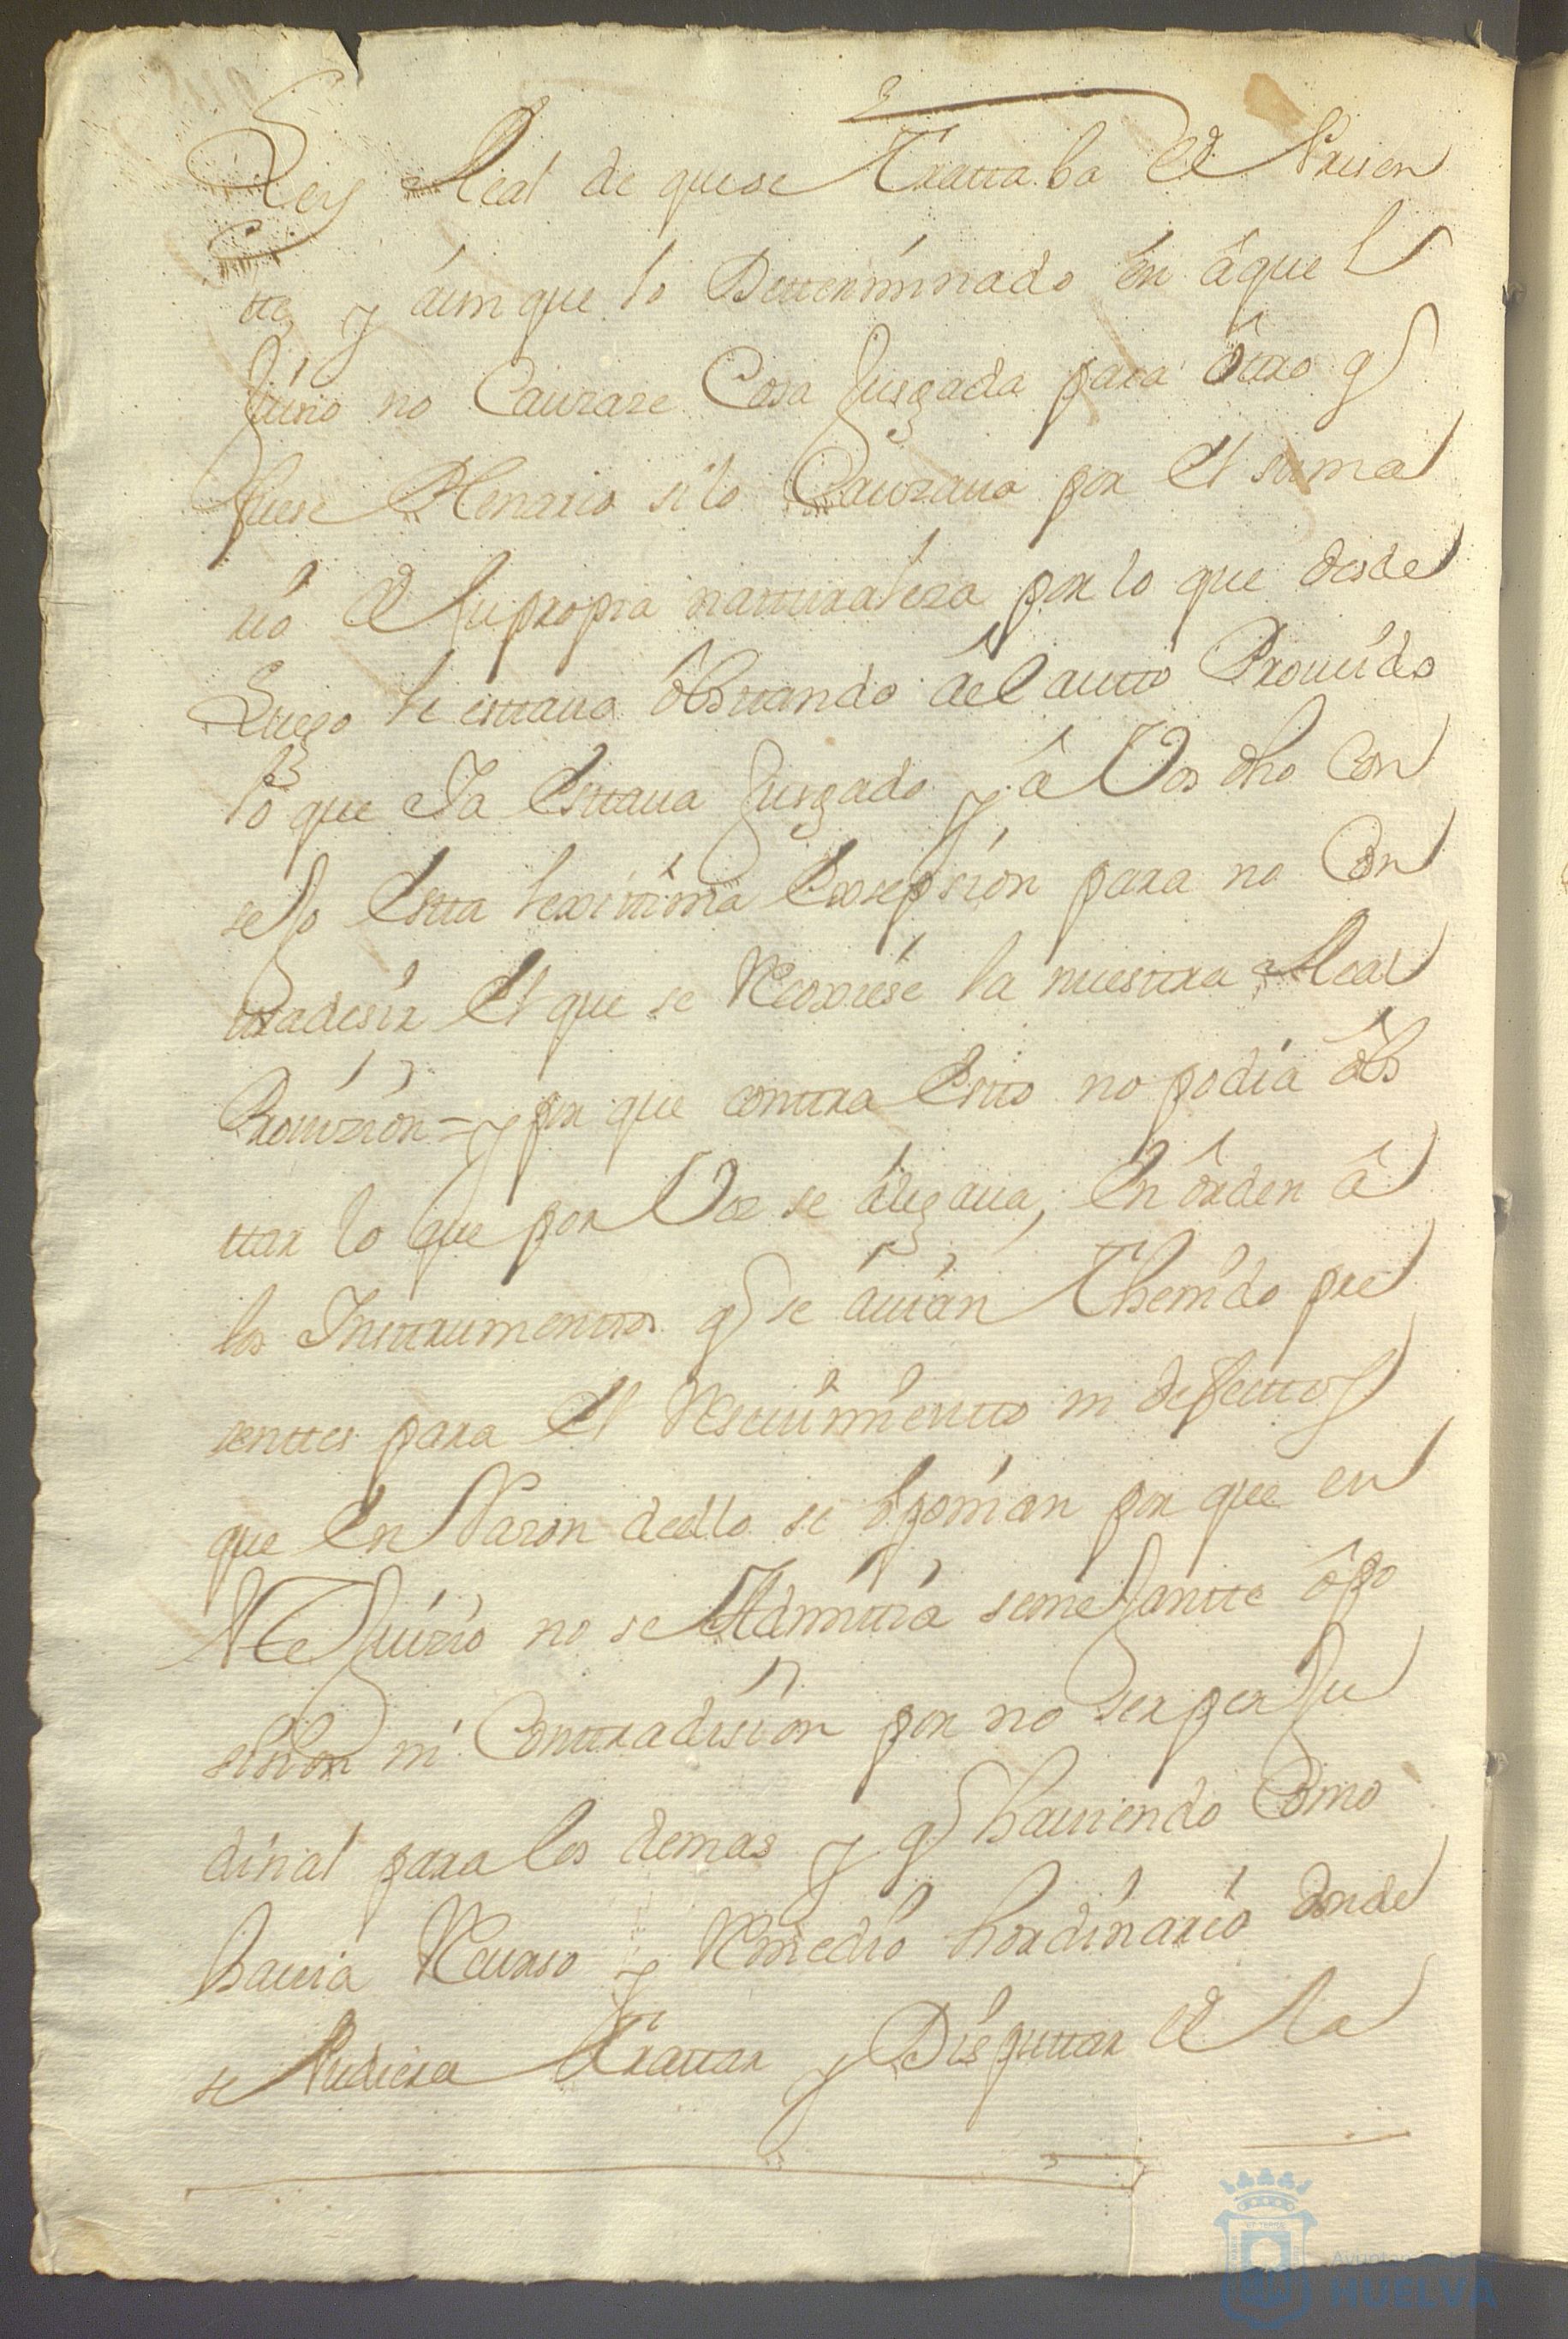 Ley Real de que se Trattaba de Presen
tte, y áunque lo Dettermínado én âquel
Juisio no Causase Cosa Jusgada para ôttro q
fuese Plenario si lo Causaua por el suma
rio de su propia natturalesa por lo que desde
Luego le esttaua ôbsttando âel autto Proueído
lo que Ya Esttaua Jusgado y â Vos dho Con
sejo Estta lexittima Exsepsion para no Con
ttradesir El que se Recoxiese la nuesttra Real
Prouizion = y por que conttra Estto no podia ôbs
ttar lo que por Vos se álegaua, En ôrden â
los Insttrumenttos q se áuian Thenido pre
senttes para El Reseuimientto ni defecttos
que En Razon de ello se ôponian por que en
Este Juizio no se Admittia semejantte ôpo
sision ni Conttradision por no ser perJu
disial para los demas y q hauiendo Como
hauia Recurso y Remedio hordinario donde
se Pudiera Trattar y Disputtar de la
AYUNTAMIENTO DE
HUELVA